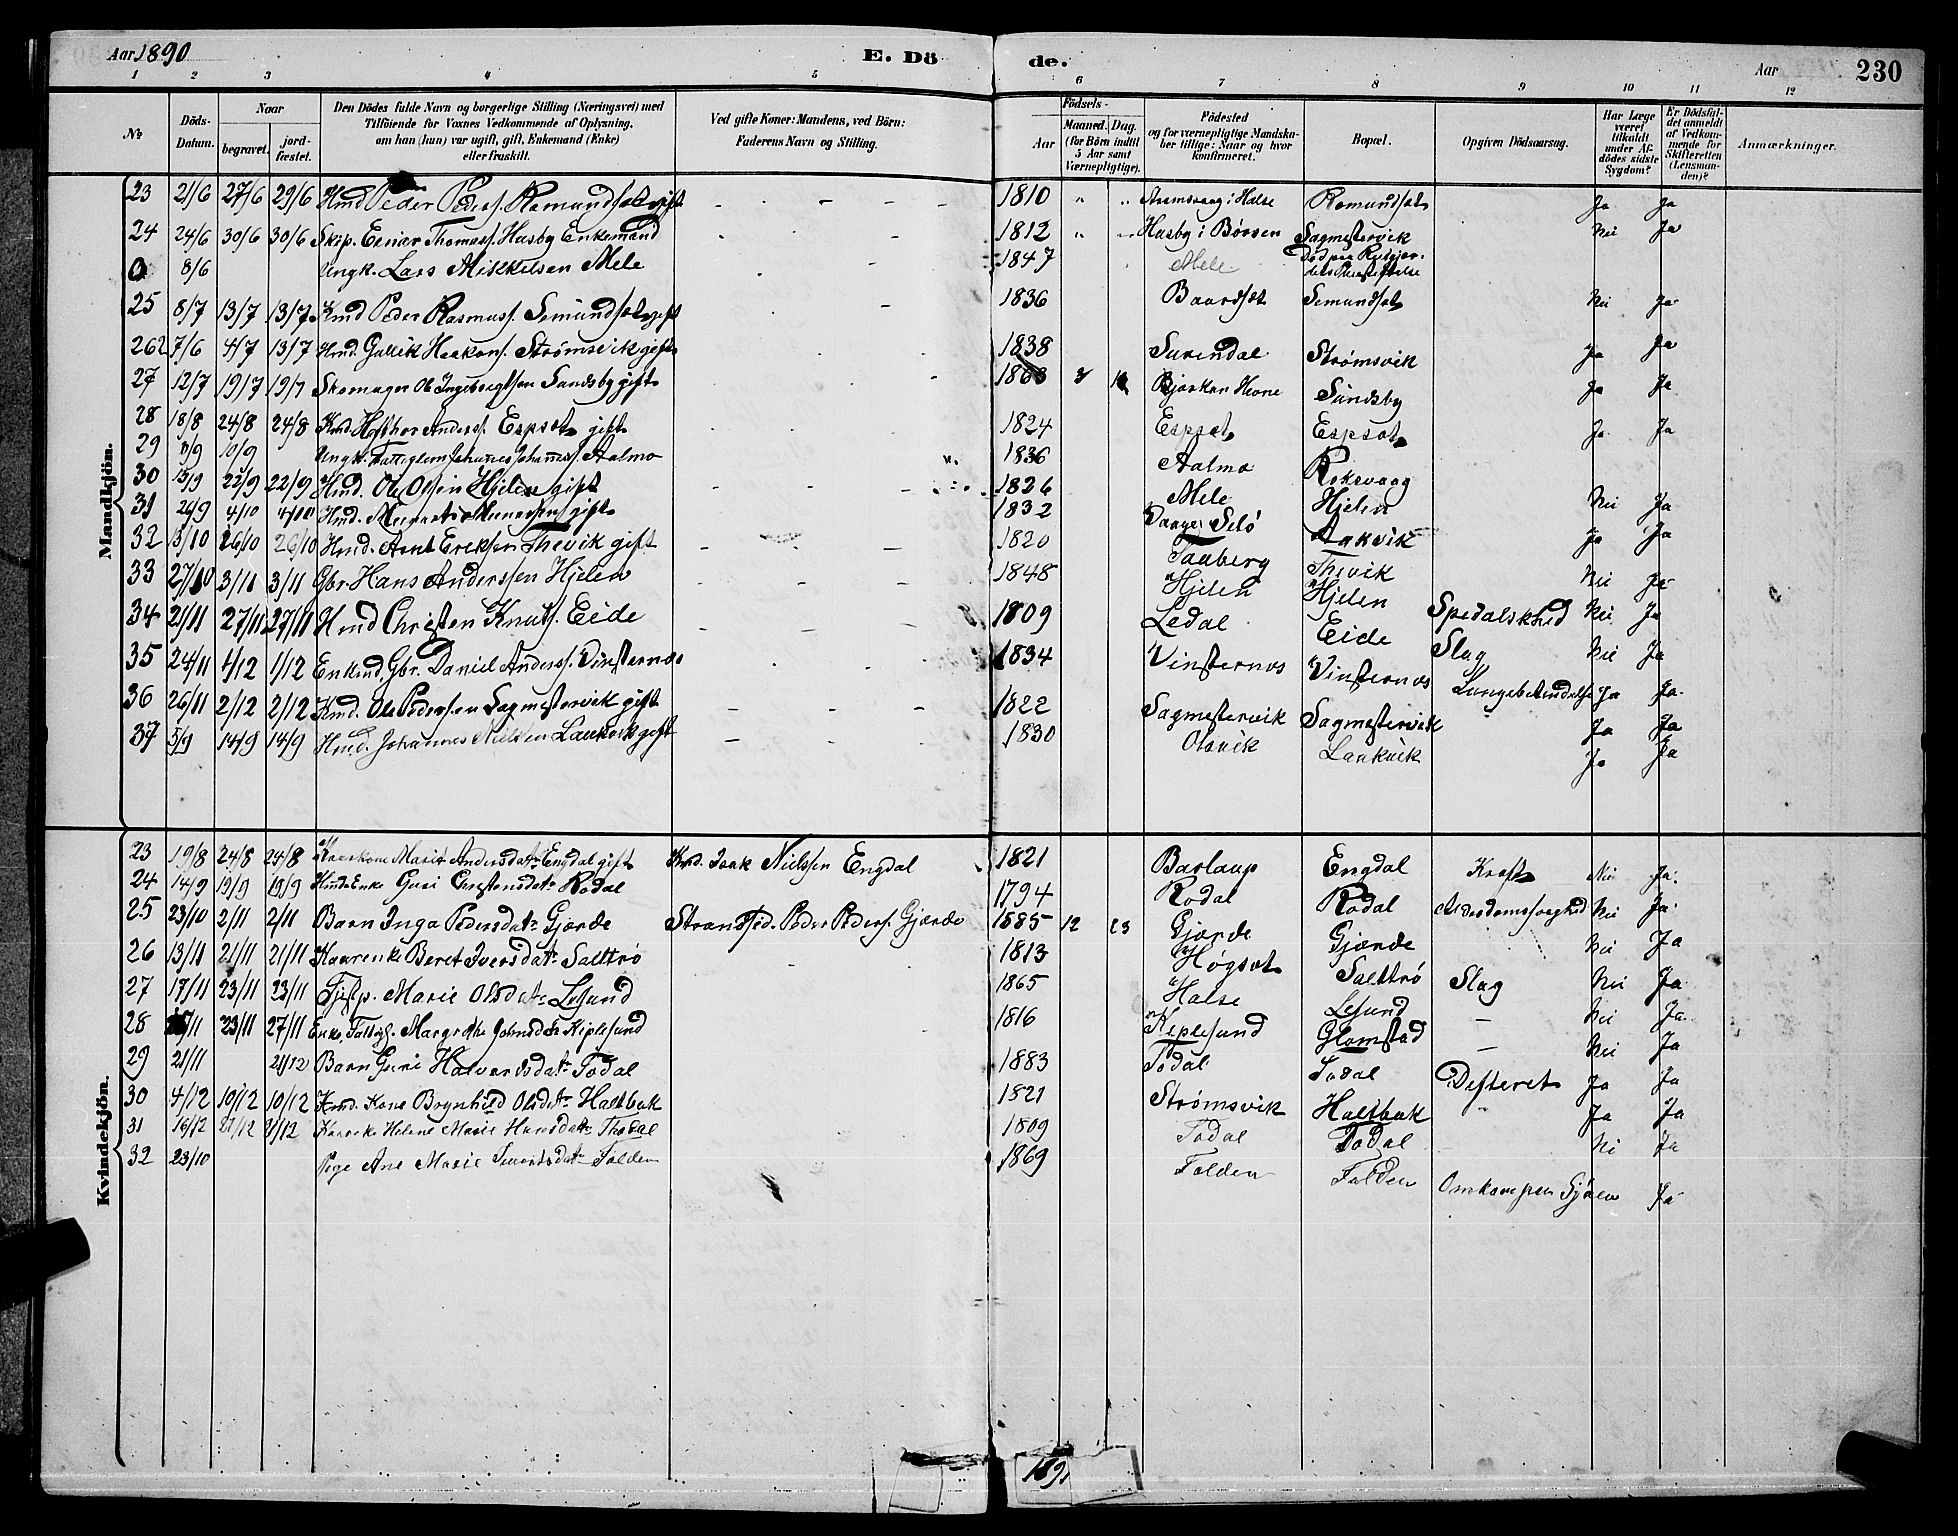 Aar 1890
E. Döde.
Aar
230
1 2 3 4 5 6 7 8 9 10 11 12
No
Döds-Datum.
Naar begravet. jordfæstet.
Den Dödes fulde Navn og borgerlige Stilling (Næringsvei) med Tilföiende for Voxnes Vedkommende af Oplysning, om han (hun) var ugift, gift, Enkemand (Enke) eller fraskilt.
Ved gifte Koner: Mandens, ved Börn: Faderens Navn og Stilling.
Födsels-Aar Maaned. Dag. (for Börn indtil 5 Aar samt Værnepligtige).
Födested og for værnepligtige Mandskaber tillige: Naar og hvor konfirmeret.
Bopæl.
Opgiven Dödsaarsag.
Har Læge været tilkaldt under Afdödes sidste Sygdom?
Er Dödsfaldet anmeldt af Vedkommende for Skifteretten (Lensmanden)?
Anmærkninger.
Mandkjön.
23 21/6 27/6 29/6 Hmd Peder Peders. Romundsæt gift - - - 1810 " " Strømsvaag i Halse Romundsæt Ja Ja
24 24/6 30/6 30/6 Skip. Eenar Thomass. Husby Enkemand 1812 " " Husby i Børsen Sagmestervik Nei Ja
0 8/6 Ungk. Lars Mikkelsen Mele 1847 Mele Død paa
25 8/7 13/7 13/7 Kmd Peder Rasmuss. Semundsæt gift 1836 Baardsæt Semundsæt Nei Ja
26 27/6 4/7 13/7 Hmd. Gullik Haakons. Strømsvik gift 1838 Surendal Strømsvik Ja Ja
27 12/7 19/7 19/7 Skomager Ole Ingebrigtsen Sandsby gift 1863 3 Hevne Sandsby Ja Ja
28 18/8 24/8 24/8 Kmd. Anderss. Espsæt gift 1824 Espsæt Espsæt Ja Ja
29 10/9 Ungk. Fattiglem Johannes Johanness. Aalmo 1836 Aalmo Roksvaag
30 13/9 22/9 22/9 Hmd. Ole Olsen Hjelen gift 1826 Mele Hjelen Nei Ja
31 26/9 4/10 4/10 Hmd. gift 1832 Aakvik Ja Ja
32 13/10 26/10 26/10 Hmd. Arnt Eriksen Thevik gift 1820 Taaberg Thevik Nei Ja
33 27/10 3/11 3/11 Gbr. Hans Anderssen Hjelen 1848 Hjelen Hjelen Spedalskhed Nei Ja
34 21/11 27/11 27/11 Hmd Christen Knuts. Eide 1809 Ledal Eide Slag Nei Ja
35 24/11 1/12 1/12 Enkmd. Gbr. Daniel Anderss. Vinsternæs 1834 Vinsternæs Vinsternæs Lungebetændelse Ja Ja
36 26/11 2/12 2/12 Kmd. Ole Pedersen Sagmestervik gift 1822 Sagmestervik Sagmestervik Ja Ja
37 5/9 14/9 14/9 Hmd. Johannes Nielsen Laukvik gift 1830 Olsvik Laukvik Ja Ja
Kvindekjön.
23 19/8 24/8 24/8 Gaardkone Marit Andersdatr Engdal gift Kmd. Isak Nielssen Engdal 1821 Baslaup Engdal Kræft Nei Ja
24 14/9 19/9 19/9 Hmds Enke Guri Christensdatr Rodal 1794 Rodal Rodal Alderdomssvaghed Nei Ja
25 23/10 2/11 2/11 Barn Inga Pedersdatr Gjærde Strandsid. Peder Peders. Gjærde 1885 12 23 Gjærde Gjærde Nei Ja
26 13/11 21/11 21/11 Kaarenke Beret Iversdatr Salttrø 1813 Høgsæt Salttrø Slag Nei Ja
27 17/11 23/11 23/11 Tjstp. Marie Olsdatr Lesund 1865 Halse Lesund - Nei Ja
28 23/11 27/11 Enke, Fattigl. Margrethe Johnsdatr Kiplesund 1816 Keplesund Glomstad - Nei Ja
29 21/11 21/12 Barn Guri Halvardsdatr Todal 1883 Todal Todal Difteret Ja Ja
30 4/12 10/12 10/12 Kmd. Kone Brynhild Olsdatr Haltbak 1821 Strømsvik Haltbak " Ja Ja
31 16/12 21/12 21/12 Kaarenke Helene Marie Hansdatr Thodal 1809 Todal Todal Ni Ja
32 23/10 Pige Ane Marie Sivertsdatr Folden 1869 Folden Folden Omkom paa Sjøen Ja
1891